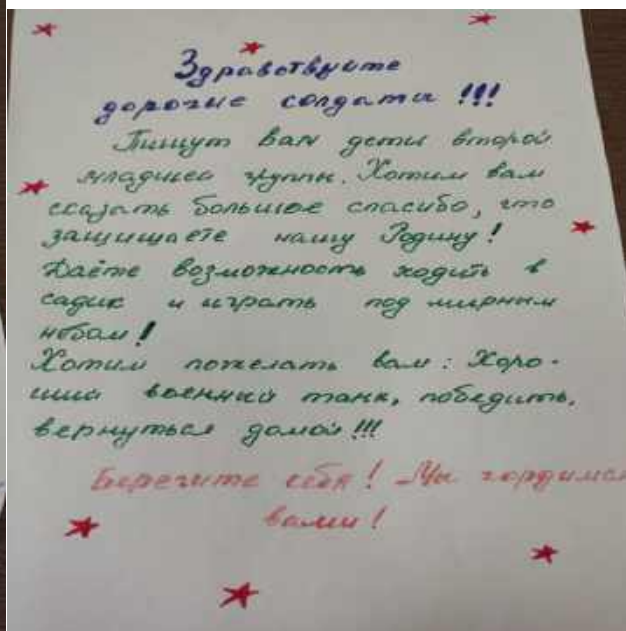 Здравствуйте
дорогие солдаты !!!
Пишут вам дети второй
младшей группы. Хотим вам
сказать большое спасибо, что
защищаете нашу Родину!
Даёте возможность ходить в
садик и играть под мирным
небом!
Хотим пожелать вам: Хоро-
ший военный танк, победить,
вернуться домой !!!
Берегите себя! Мы гордимся
вами!